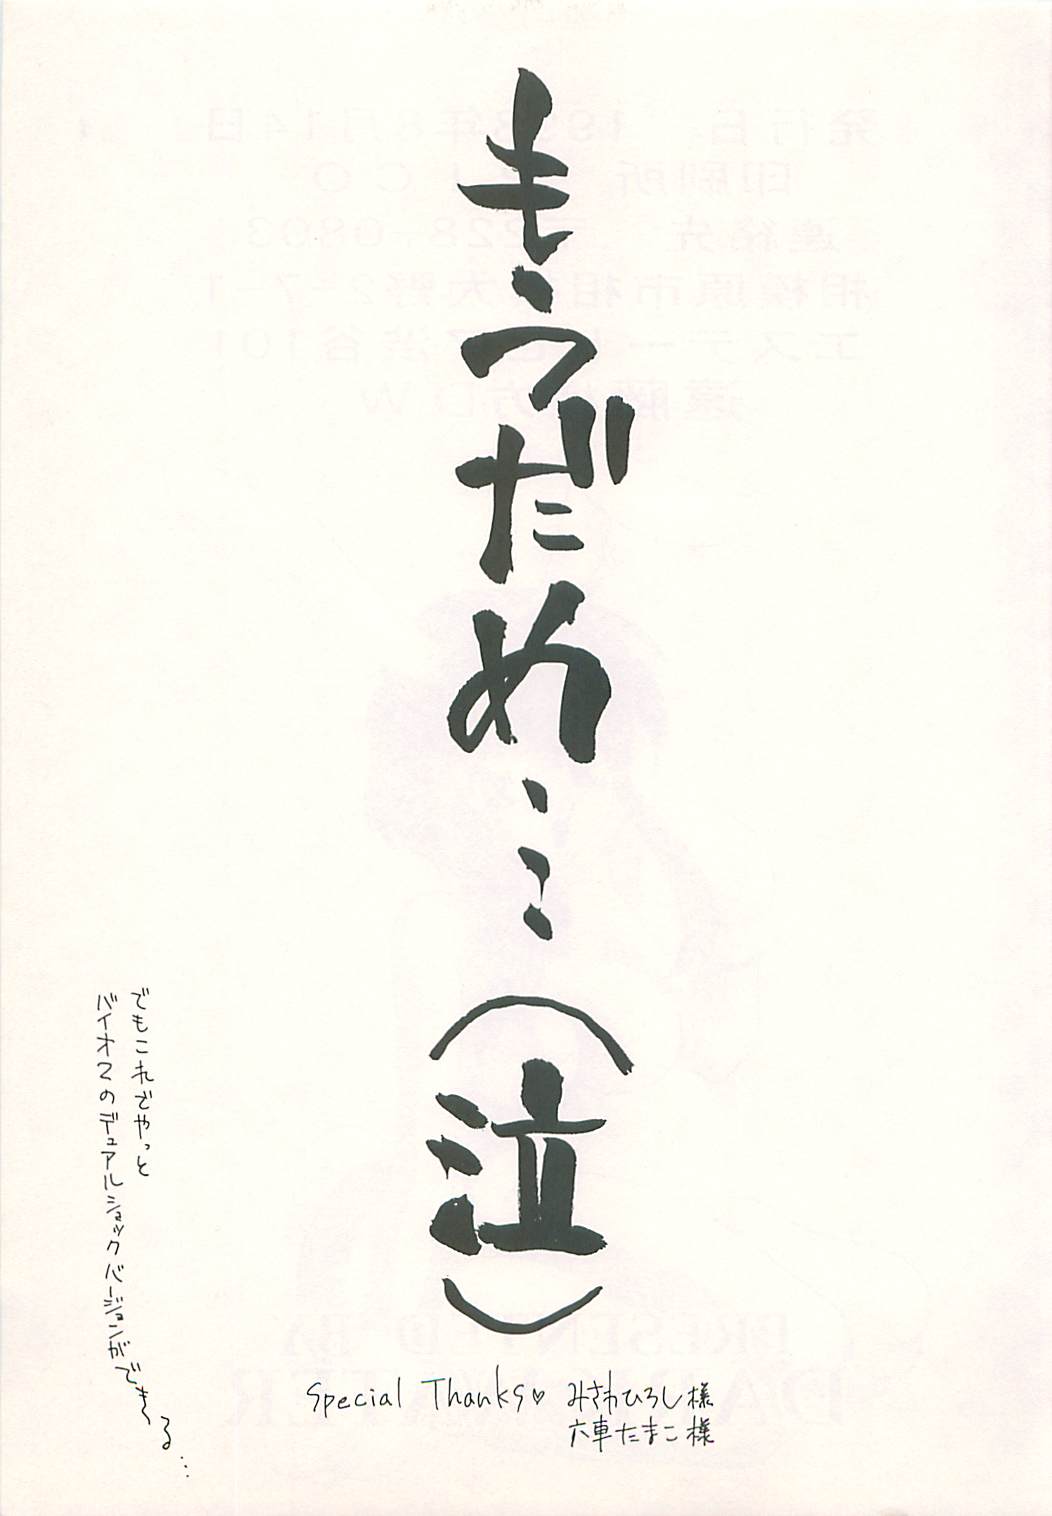 もうだめ…(泣)
でもこれでやっと
バイオ2のデュアルショックバージョンができる…
Special Thanks♡ みさわひろし様
六車たまこ様